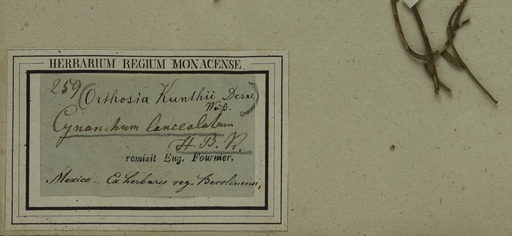 HERBARIUM REGIUM MONACENSE.
259
(Orthosia Kunthii Dcsne)
Cynanchum lanceolatum
H. B.
remisit Eug. Fournier.
Mexico. Ex herbario reg. Berolinensi,